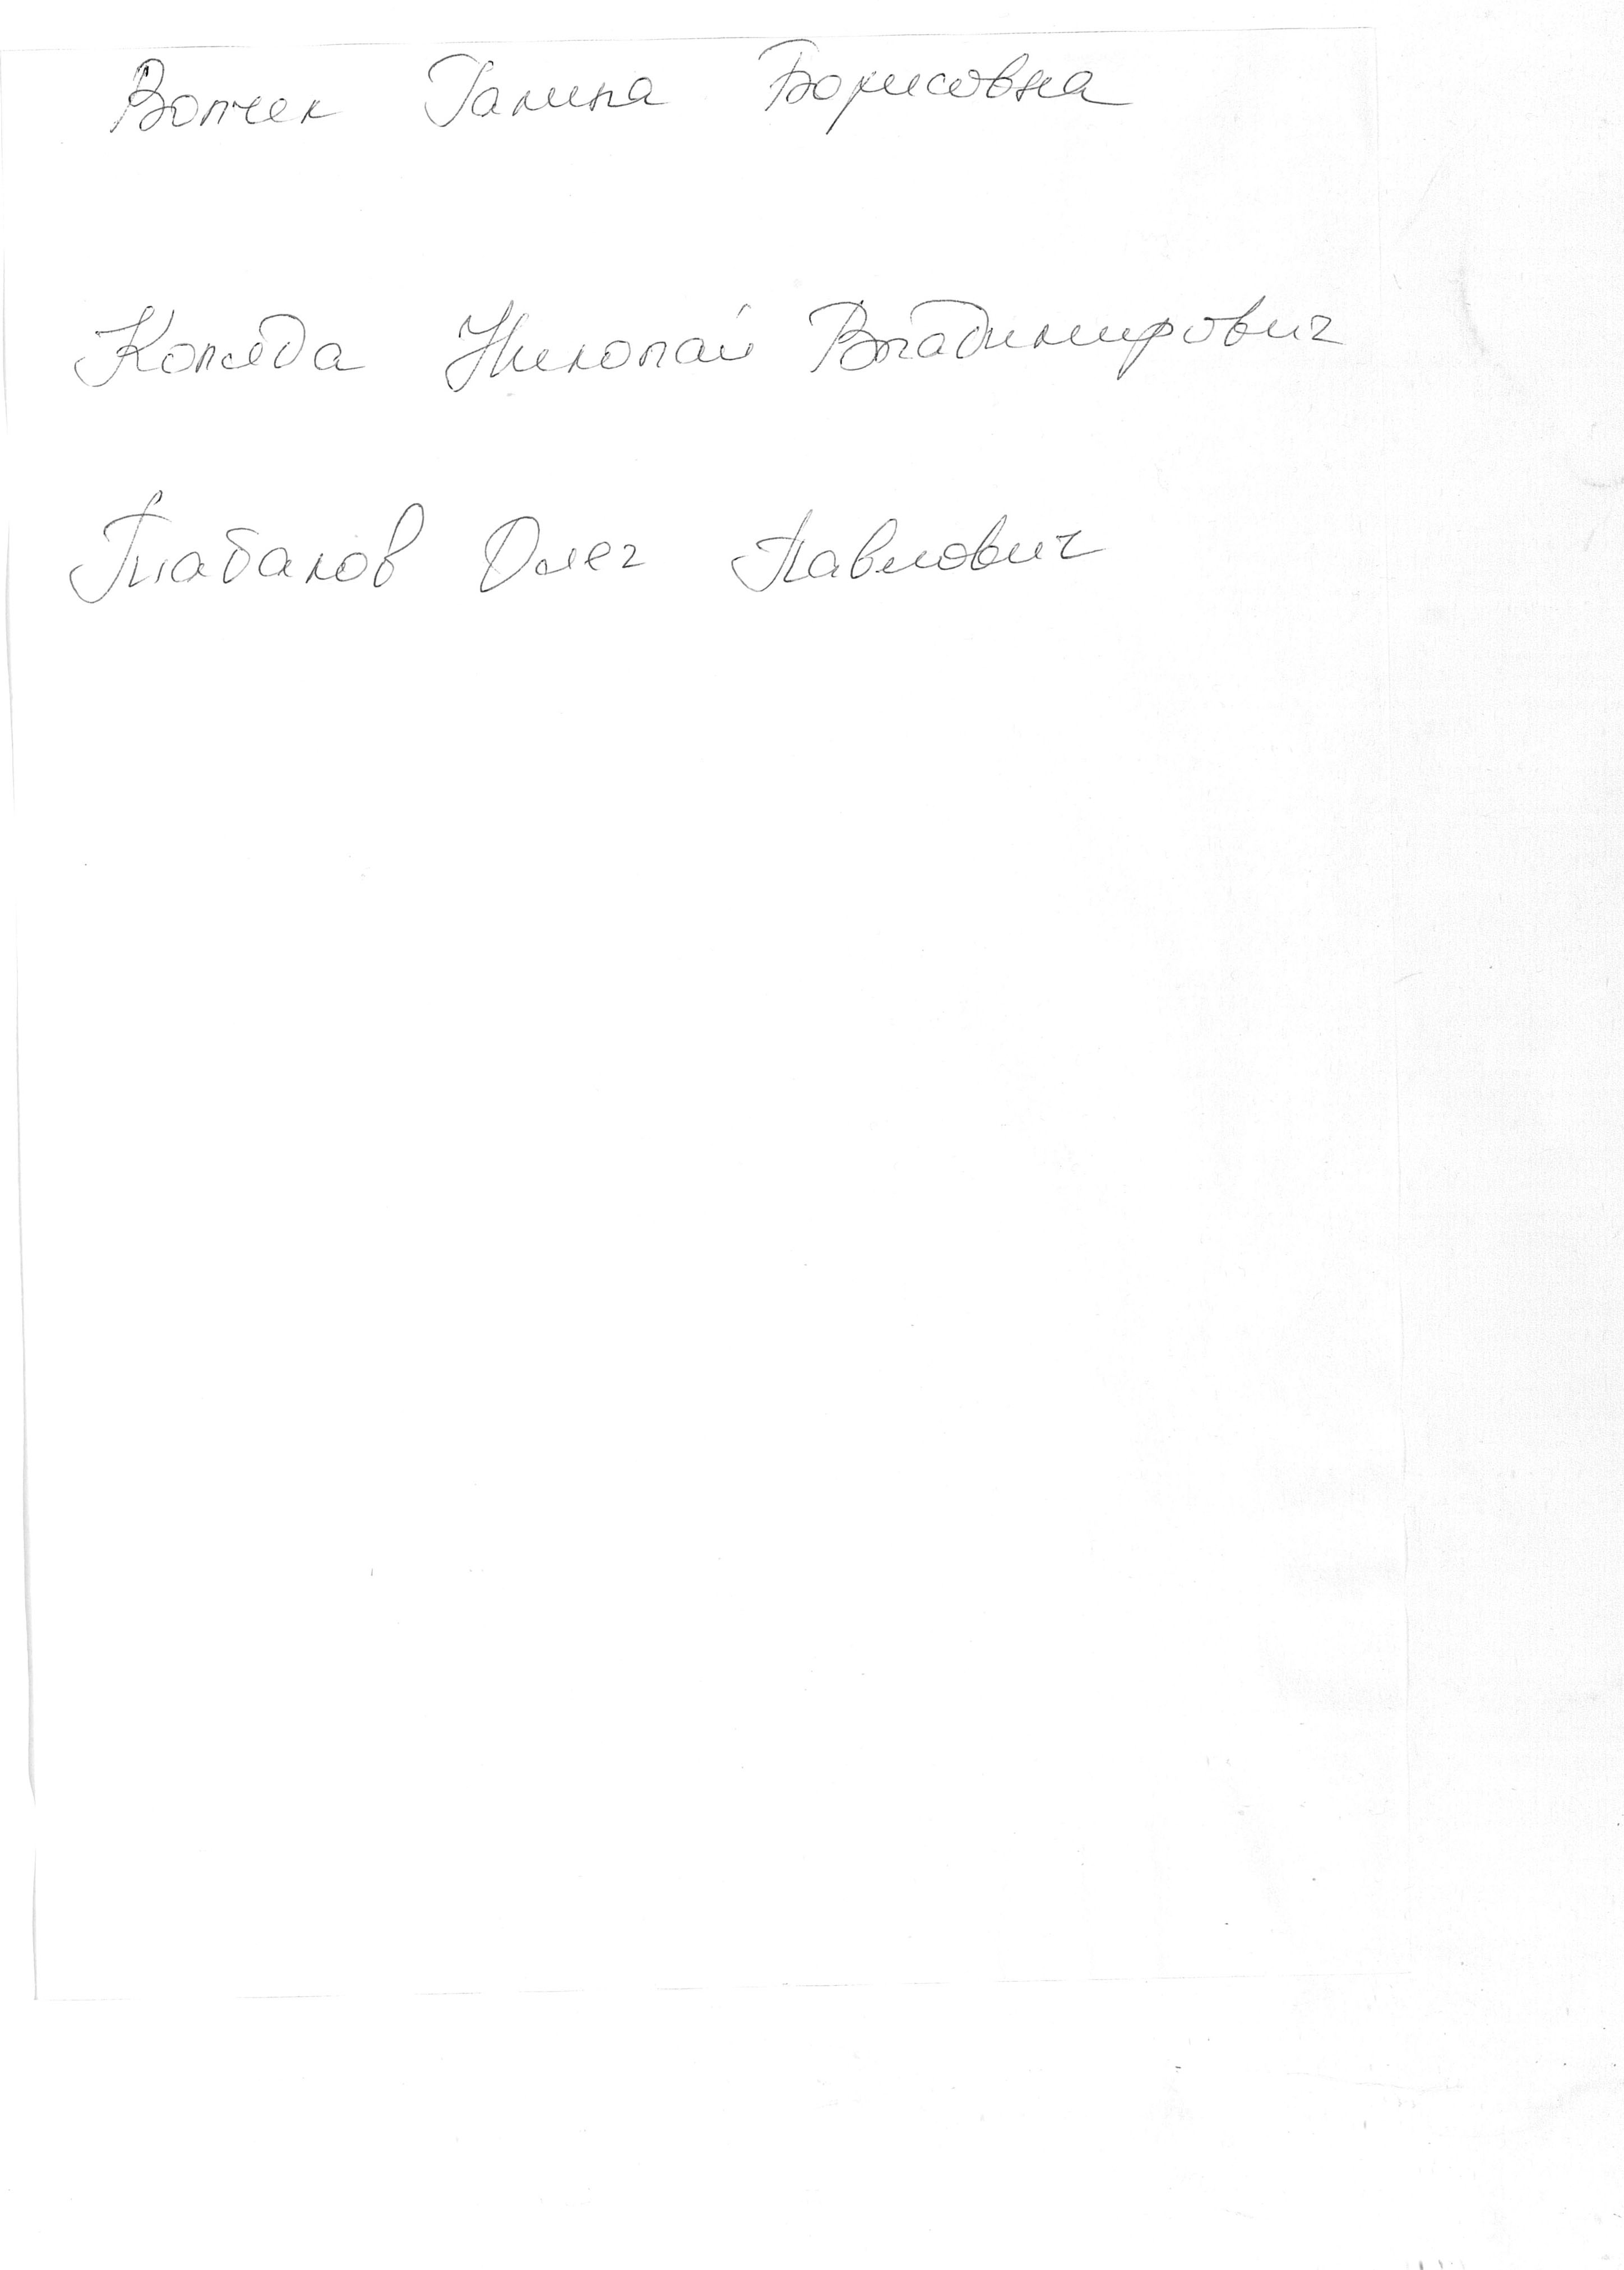 Волчек Галина Борисовна
Коляда Николай Владимирович
Табаков Олег Павлович